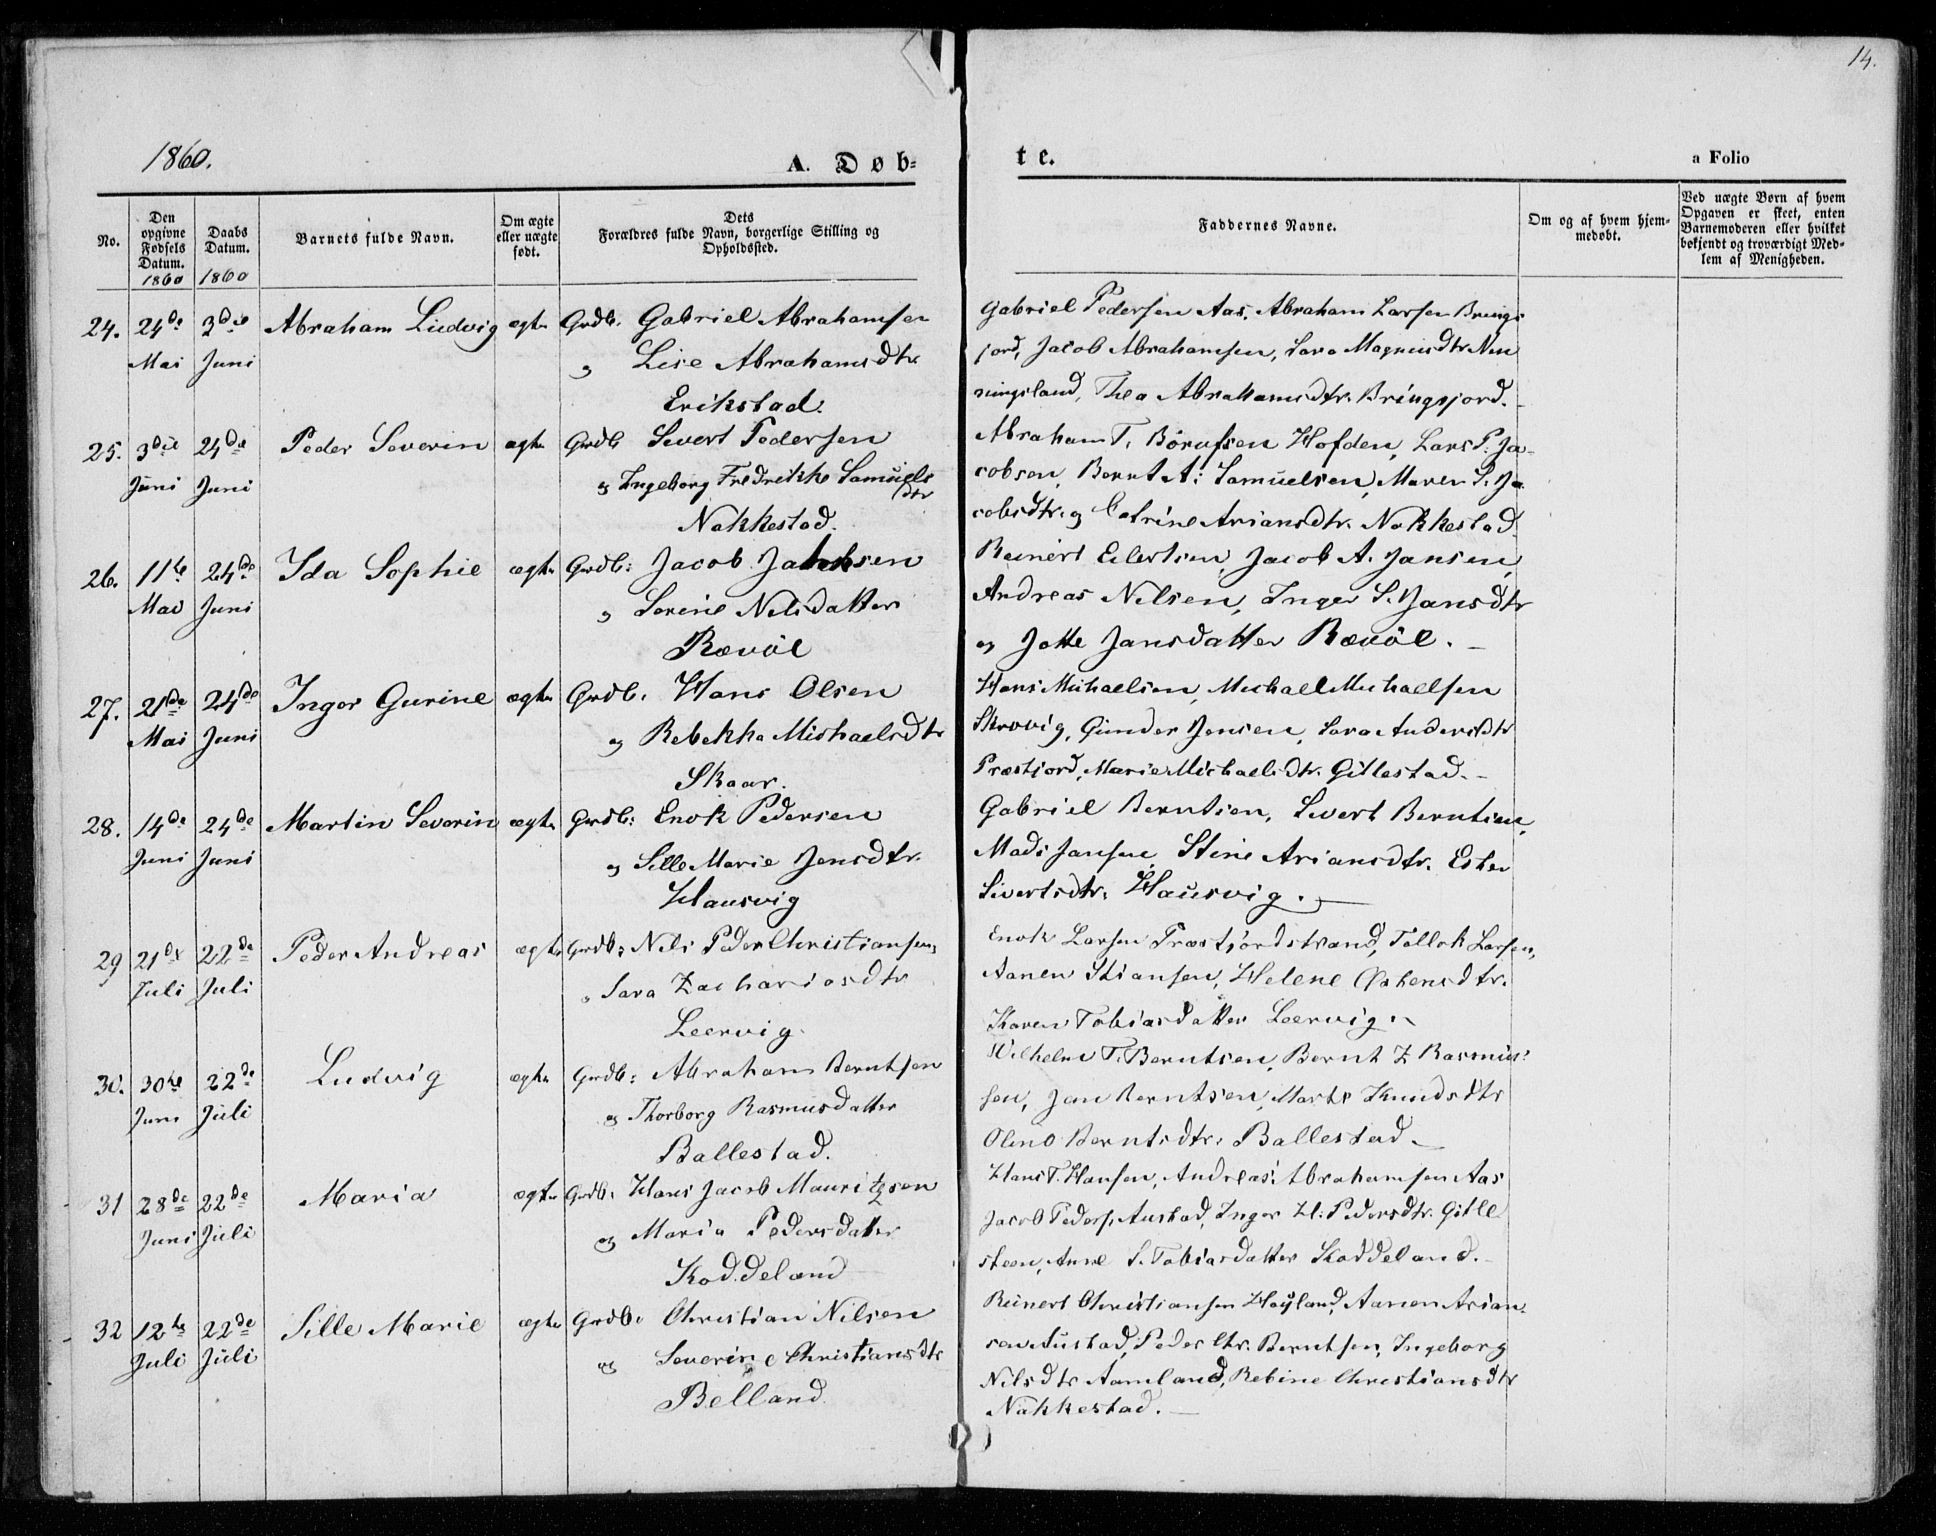 14.
1860.
A. Døb=
te.
a Folio
No.
Den opgivne Fødsels Datum.
1860
Daabs Datum.
1860
Barnets fulde Navn.
Om ægte eller uægte født.
Dets
Forældres fulde Navn, borgerlige Stilling og
Opholdssted.
Faddernes Navne.
Om og af hvem hjem-
medøbt.
Ved uægte Børn af hvem
Opgaven er skeet, enten
Barnemoderen eller hvilket
bekjendt og troværdigt Med-
lem af Menigheden.
24. 24de Mai 3die Juni Abraham Ludvig ægte Grdb. Gabriel Abrahamsen
og Lise Abrahamsdtr
Erikstad.
Gabriel Pedersen Aas, Abraham Larsen Brings
jord, Jacob Abrahamsen, Sara Magnusdtr Nen
ningsland, Thea Abrahamsdtr. Bringsjord.
25. 3die Juni 24de Juni Peder Severin ægte Grdb Sivert Pedersen
og Ingeborg Fredrikke Samuels
dtr
Nakkestad.
Abraham T. Børufsen Hofden, Lars P. Ja-
cobsen, Bernt A. Samuelsen, Maren S. Ja
cobsdtr. og Catrine Ariansdtr. Nakkestad
26. 11te Mai 24de Juni Ida Sophie ægte Grdb: Jacob Jakobsen
og Sorine Nilsdatter
Rævøl
Reinert Eilertsen, Jacob A. Jansen,
Andreas Nilsen, Inger S. Jansdtr
og Jotte Jansdatter Rævøl.
27. 21de Mai 24de Juni Inger Gurine ægte Grdb. Hans Olsen
og Rebekka Michaelsdtr
Skaar.
Hans Michaelsen, Michael Michaelsen
Skrovig, Gunder Jensen, Sara Andersdtr
Præstjord, Marie Michaelsdtr. Gitlestad.
28. 14de Juni 24de Juni Martin Severin ægte Grdb: Enok Pedersen
og Sille Marie Jensdtr.
Hausvig
Gabriel Berntsen, Sivert Berntsen,
Mads Jansen, Stine Ariansdtr. Ester
Sivertsdtr. Hausvig.
29 21de Juli 22de Juli Peder Andreas ægte Grdb: Nils Peder Christiansen,
" Sara Zachariasdtr
Leervig.
Enok Larsen Præstjordstrand, Tollok Larsen,
Aanen Stiansen, Helene Østensdtr.
Karen Tobiasdatter Leervig.
30. 30te Juni 22de Juli Ludvig ægte Grdb: Abraham Berntsen
og Thorborg Rasmusdatter
Ballestad.
Wilhelm T. Berntsen, Bernt Z Rasmus-
sen, Jan Berntsen, Marte Knudsdtr
Oline Berntsdtr. Ballestad.
31 28de Juni 22de Juli Maria ægte Grdb. Hans Jacob Mauritzsen
og Maria Pedersdatter
Koddeland
Hans T. Hansen, Andreas Abrahamsen Aas
Jacob Peders. Austad, Inger H. Pedersdtr. Gitle
steen, Anne S. Tobiasdatter Koddeland.
32 12te Juli 22de Juli Sille Marie ægte Grdb. Christian Nilsen
og Severine Christiansdtr
Belland
Reinert Christiansen Høyland, Aanen Arian
sen Austad, Peder Chr. Berntsen, Ingeborg
Nilsdtr Aamland, Rebine Christiansdtr
Nakkestad.